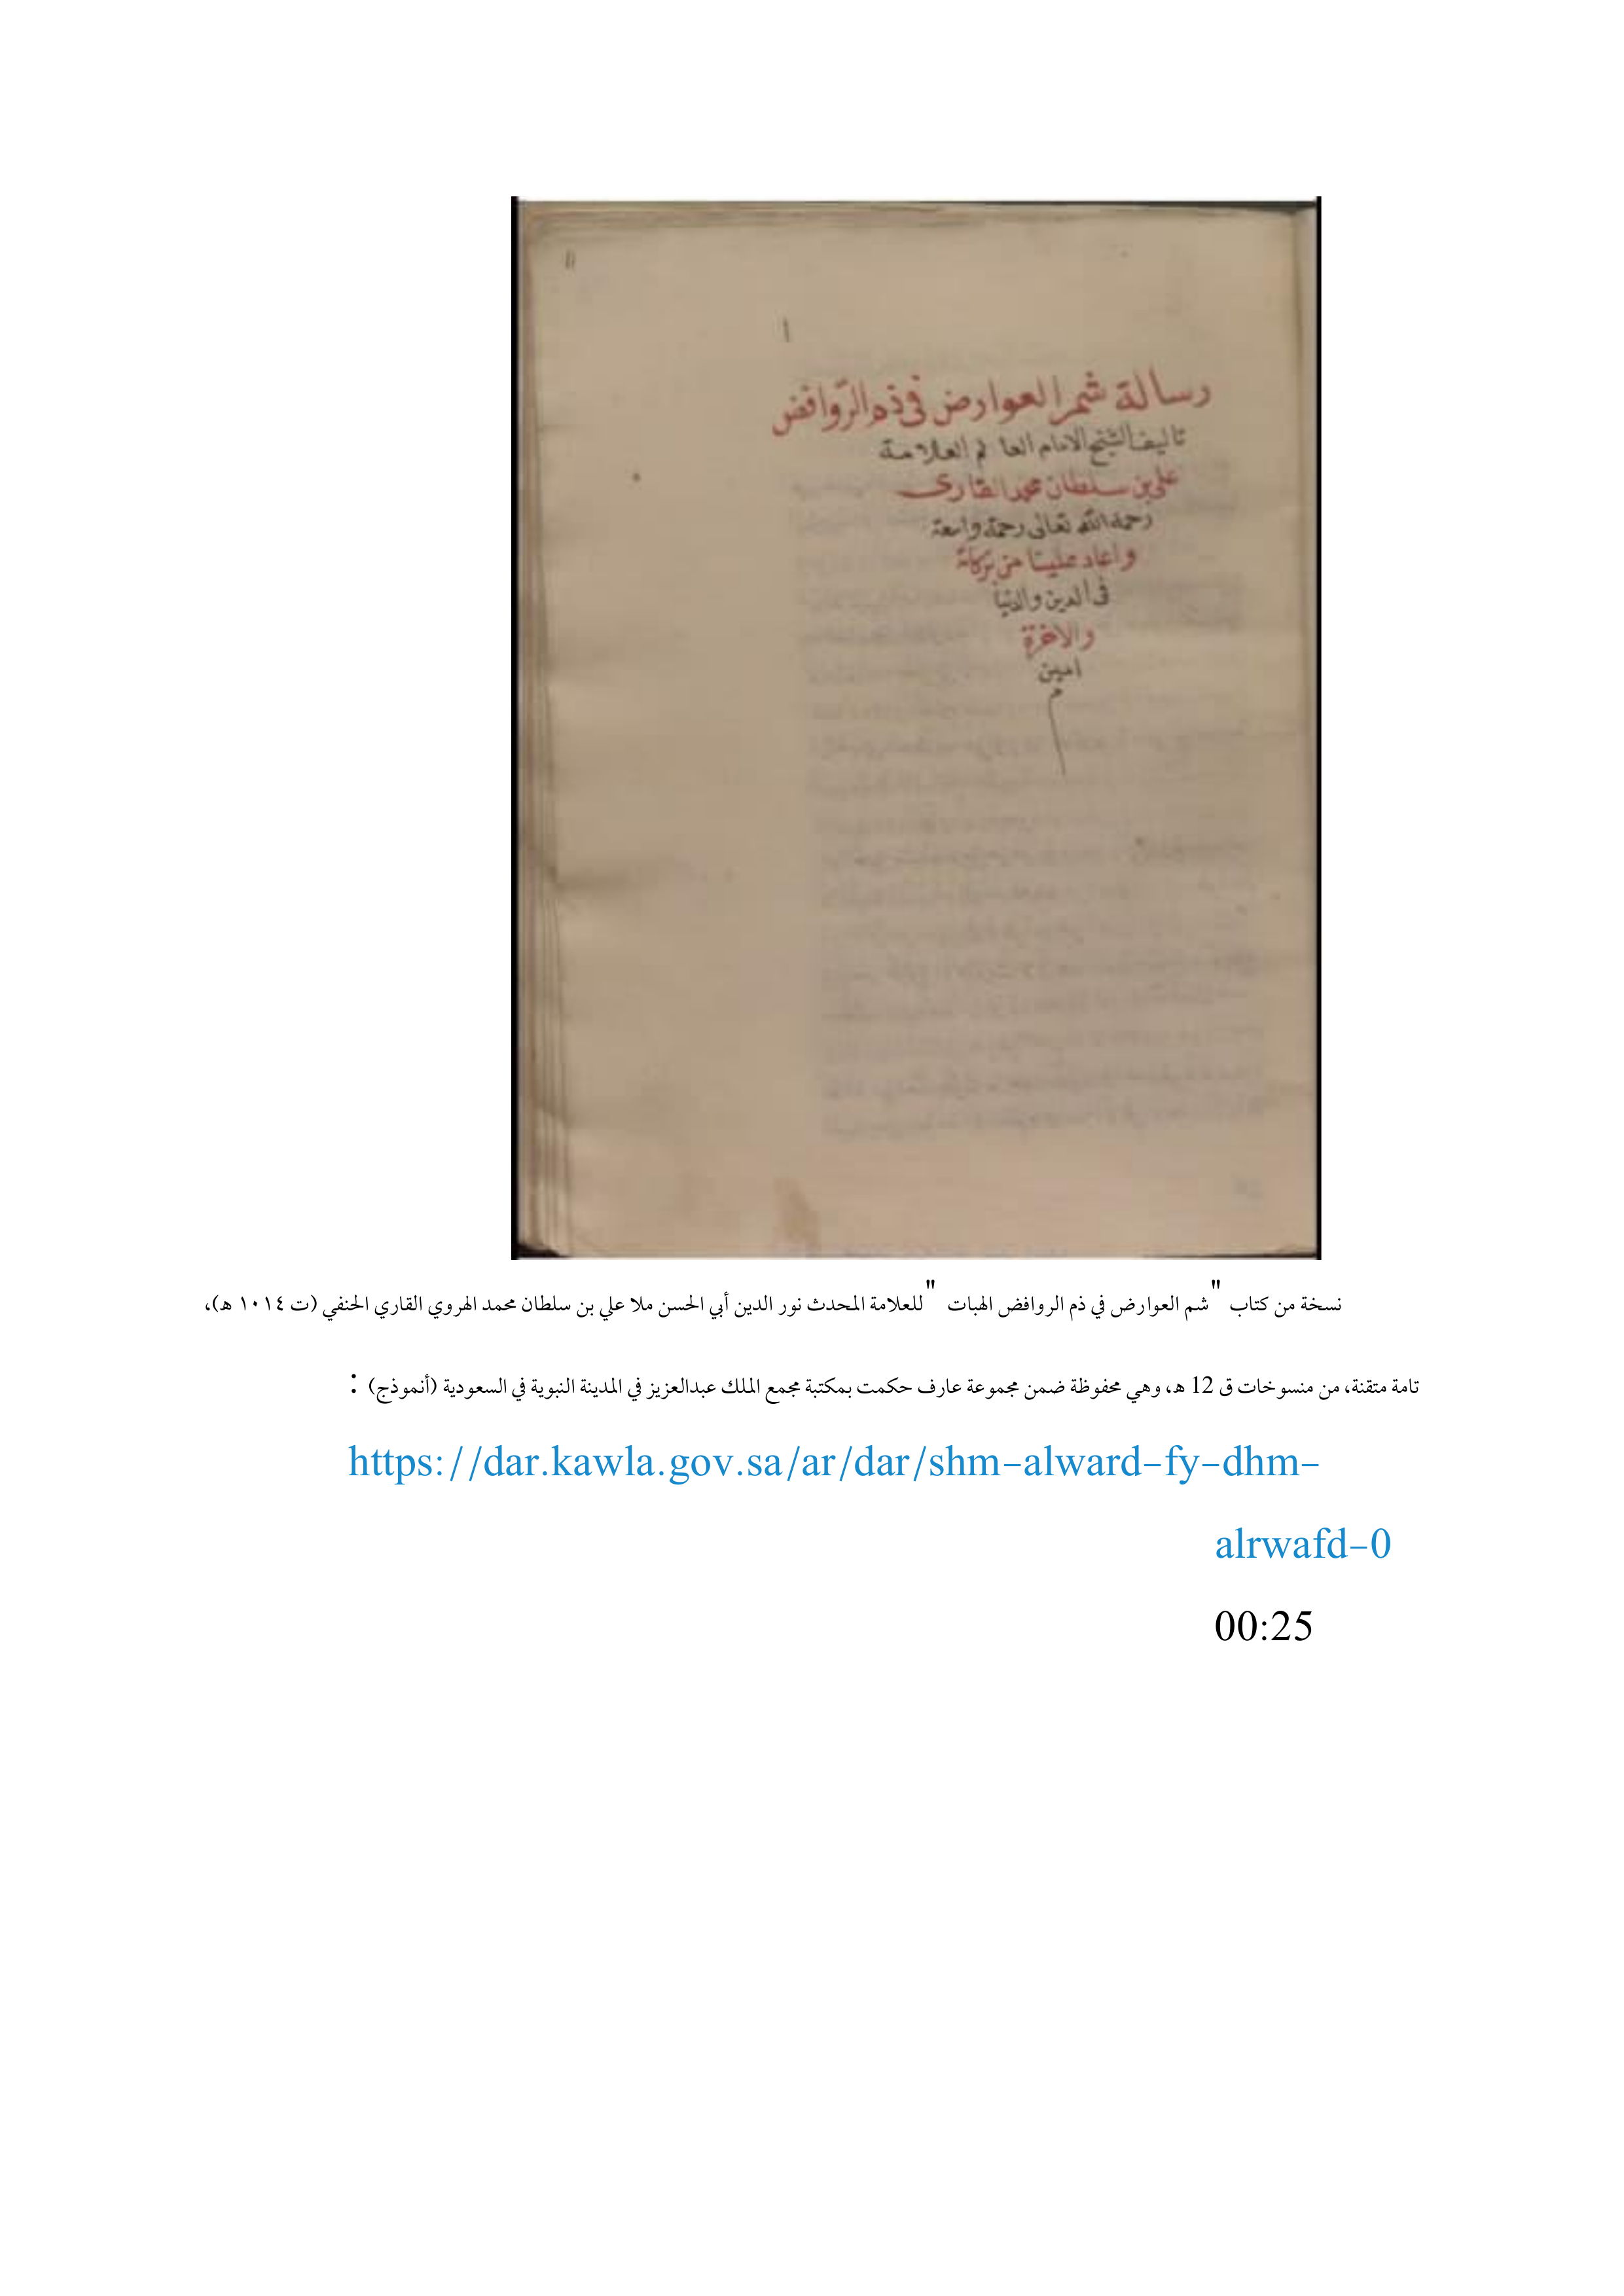 ١١
١
رسالة شم العوارض فى ذم الروافض
تاليف الشيخ الامام العالم العلامة
على بن سلطان محمد القارى
رحمه الله تعالى رحمة واسعة
واعاد علينا من بركاته
فى الدين والدنيا
والاخرة
امين
م
نسخة من كتاب "شم العوارض في ذم الروافض الهبات " للعلامة المحدث نور الدين أبي الحسن ملا علي بن سلطان محمد الهروي القاري الحنفي (ت ١٠١٤ هـ)،
تامة متقنة، من منسوخات ق 12 هـ، وهي محفوظة ضمن مجموعة عارف حكمت بمكتبة مجمع الملك عبدالعزيز في المدينة النبوية في السعودية (أنموذج) :
https://dar.kawla.gov.sa/ar/dar/shm-alward-fy-dhm-
alrwafd-0
00:25